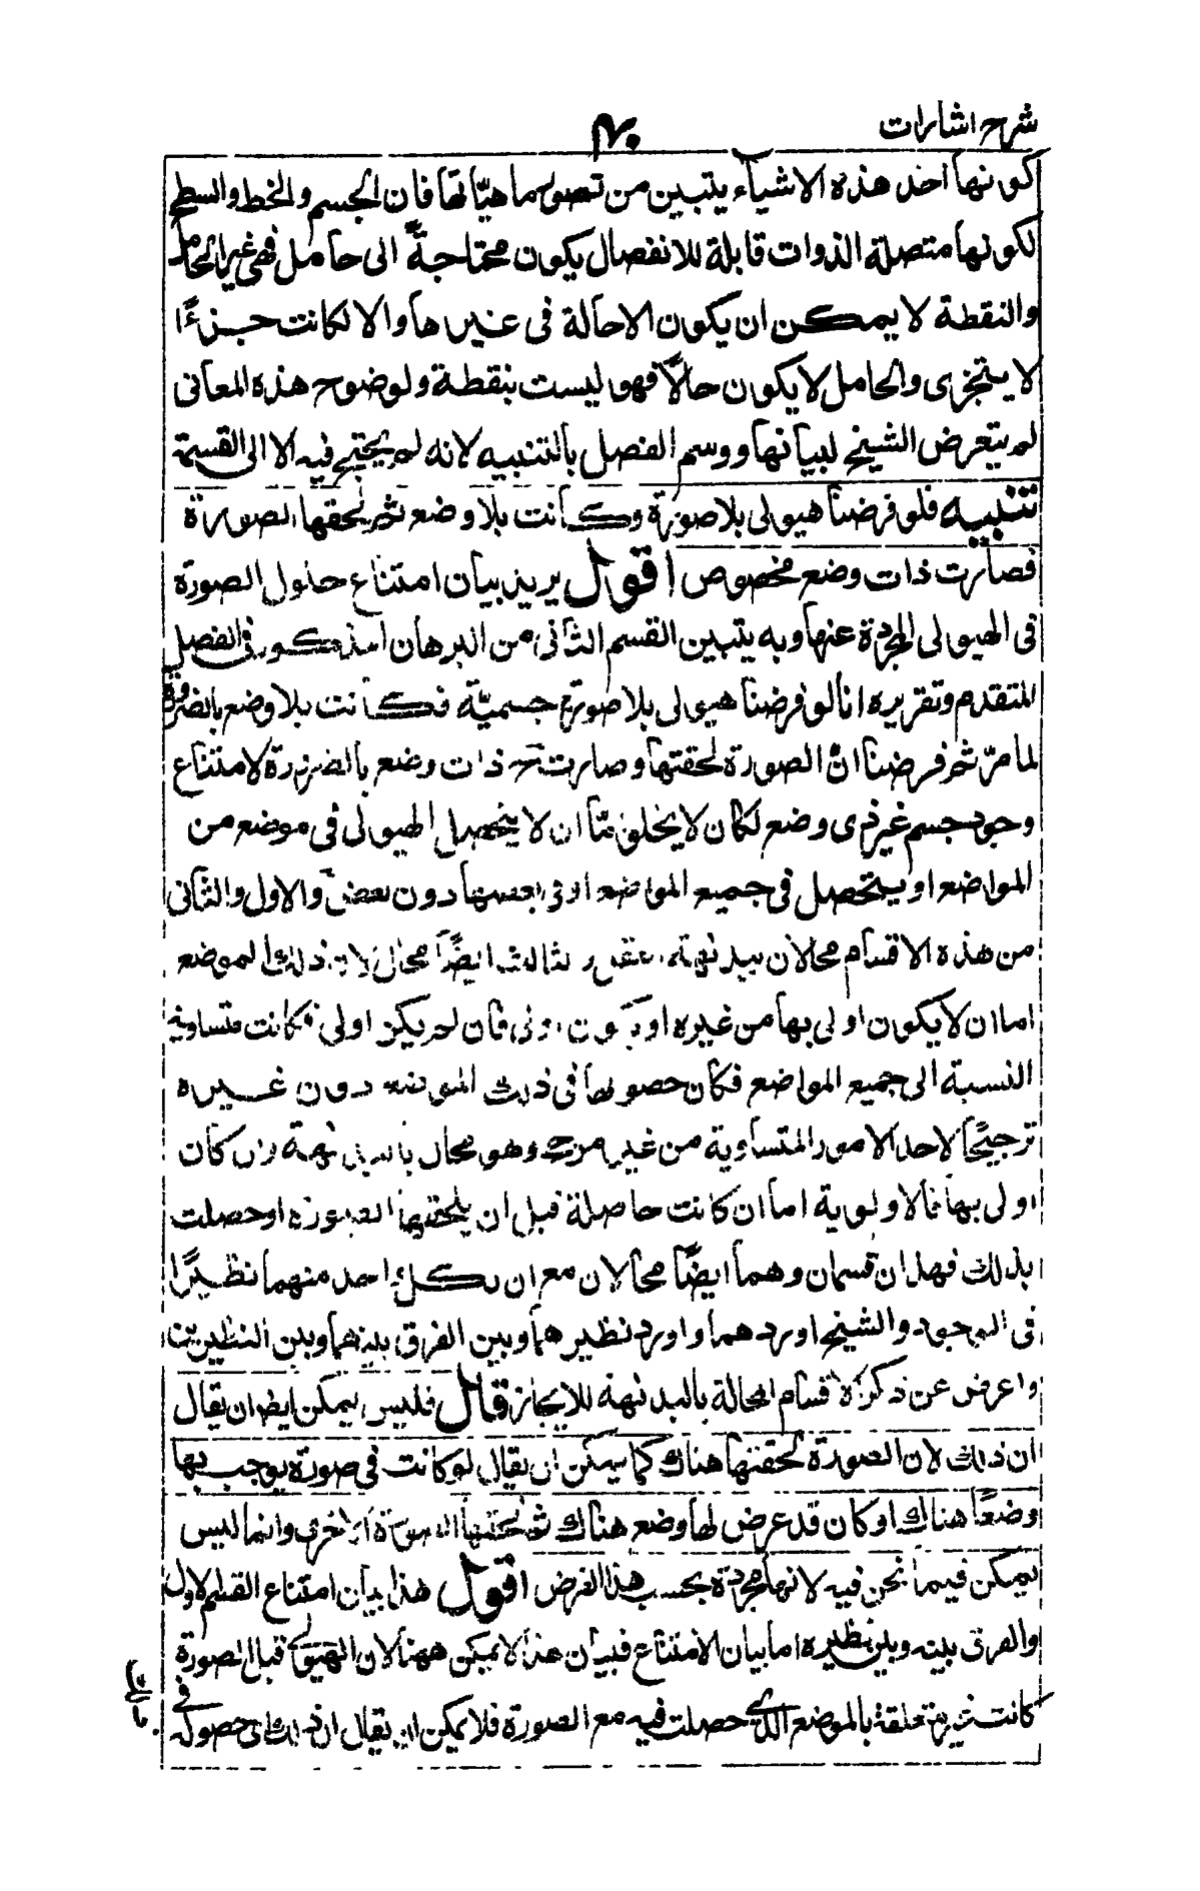 شرح اشارات
۴۰
كونها احد هذه الاشياء يتبين من تصور ماهيّاتها فان الجسم والخط والسطح
لكونها متصلة الذوات قابلة للانفصال يكون محتاجةً الى حامل فهى غير الحامل
والنقطة لا يمكن ان يكون الا حالة فى غيرها والا لكانت جزءًا
لا يتجزى والحامل لا يكون حالًّا فهو ليست بنقطة ولوضوح هذه المعانى
لم يتعرض الشيخ لبيانها ووسم الفصل بالتنبيه لانه لم يحتج فيه الا الى القسمة
تنبيه فلو فرضنا هيولى بلا صورة وكانت بلا وضع ثم لحقها الصورة
فصارت ذات وضع مخصوص اقول يريد بيان امتناع حلول الصورة
فى الهيولى المجردة عنها وبه يتبين القسم الثانى من البرهان المذكور فى الفصل
المتقدم وتقريره انا لو فرضنا هيولى بلا صورة جسميّة فكانت بلا وضع بالضرورة
لما مرّ ثم فرضنا انّ الصورة لحقتها وصارت ح ذات وضع بالضرورة لامتناع
وجود جسم غير ذى وضع لكان لا يخلو امّا ان لا يتحصل الهيولى فى موضع من
المواضع او يتحصل فى جميع المواضع او فى بعضها دون بعض والاول والثانى
من هذه الاقسام محالان ببديهة العقل والثالث ايضًا محال لان ذلك الموضع
اما ان لا يكون اولى بها من غيره او يكون اولى فان لم يكن اولى فكانت متساوية
النسبة الى جميع المواضع فكان حصولها فى ذلك الموضع دون غيره
ترجيحًا لاحد الامور المتساوية من غير مرجح وهو محال بالبديهة وان كان
اولى بها فالاولوية اما ان كانت حاصلة قبل ان يلحقها الصورة او حصلت
بذلك فهذان قسمان وهما ايضًا محالان مع ان لكل واحد منهما نظيرًا
فى الوجود والشيخ اوردهما واورد نظيرهما وبين الفرق بينهما وبين النظيرين
واعرض عن ذكر الاقسام المحالة بالبديهة للايجاز قال فليس يمكن ايضا ان يقال
ان ذلك لان الصورة لحقتها هناك كما يمكن ان يقال لو كانت فى صورة يوجب بها
وضعًا هناك او كان قد عرض لها وضع هناك ثم لحقتها الصورة الاخرى وانما ليس
يمكن فيما نحن فيه لانها مجردة بحسب هذا الفرض اقول هذا بيان امتناع القسم الاول
والفرق بينه وبين نظيره اما بيان الامتناع فبيان هذا لا يمكن ههنا لان الهيولى قبل الصورة
كانت غير متعلقة بالموضع الذى حصلت فيه مع الصورة فلا يمكن ان يقال ان ذلك اى حصولها فى